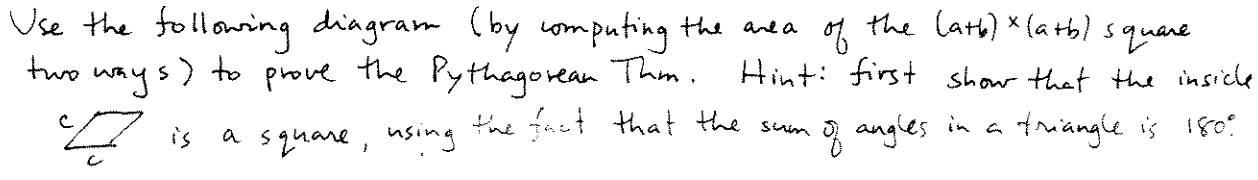 Use the following diagram (by computing the area of the (a+b) × (a+b) square
two ways) to prove the Pythagorean Thm. Hint: first show that the inside
c
c is a square, using the fact that the sum of angles in a triangle is 180°.